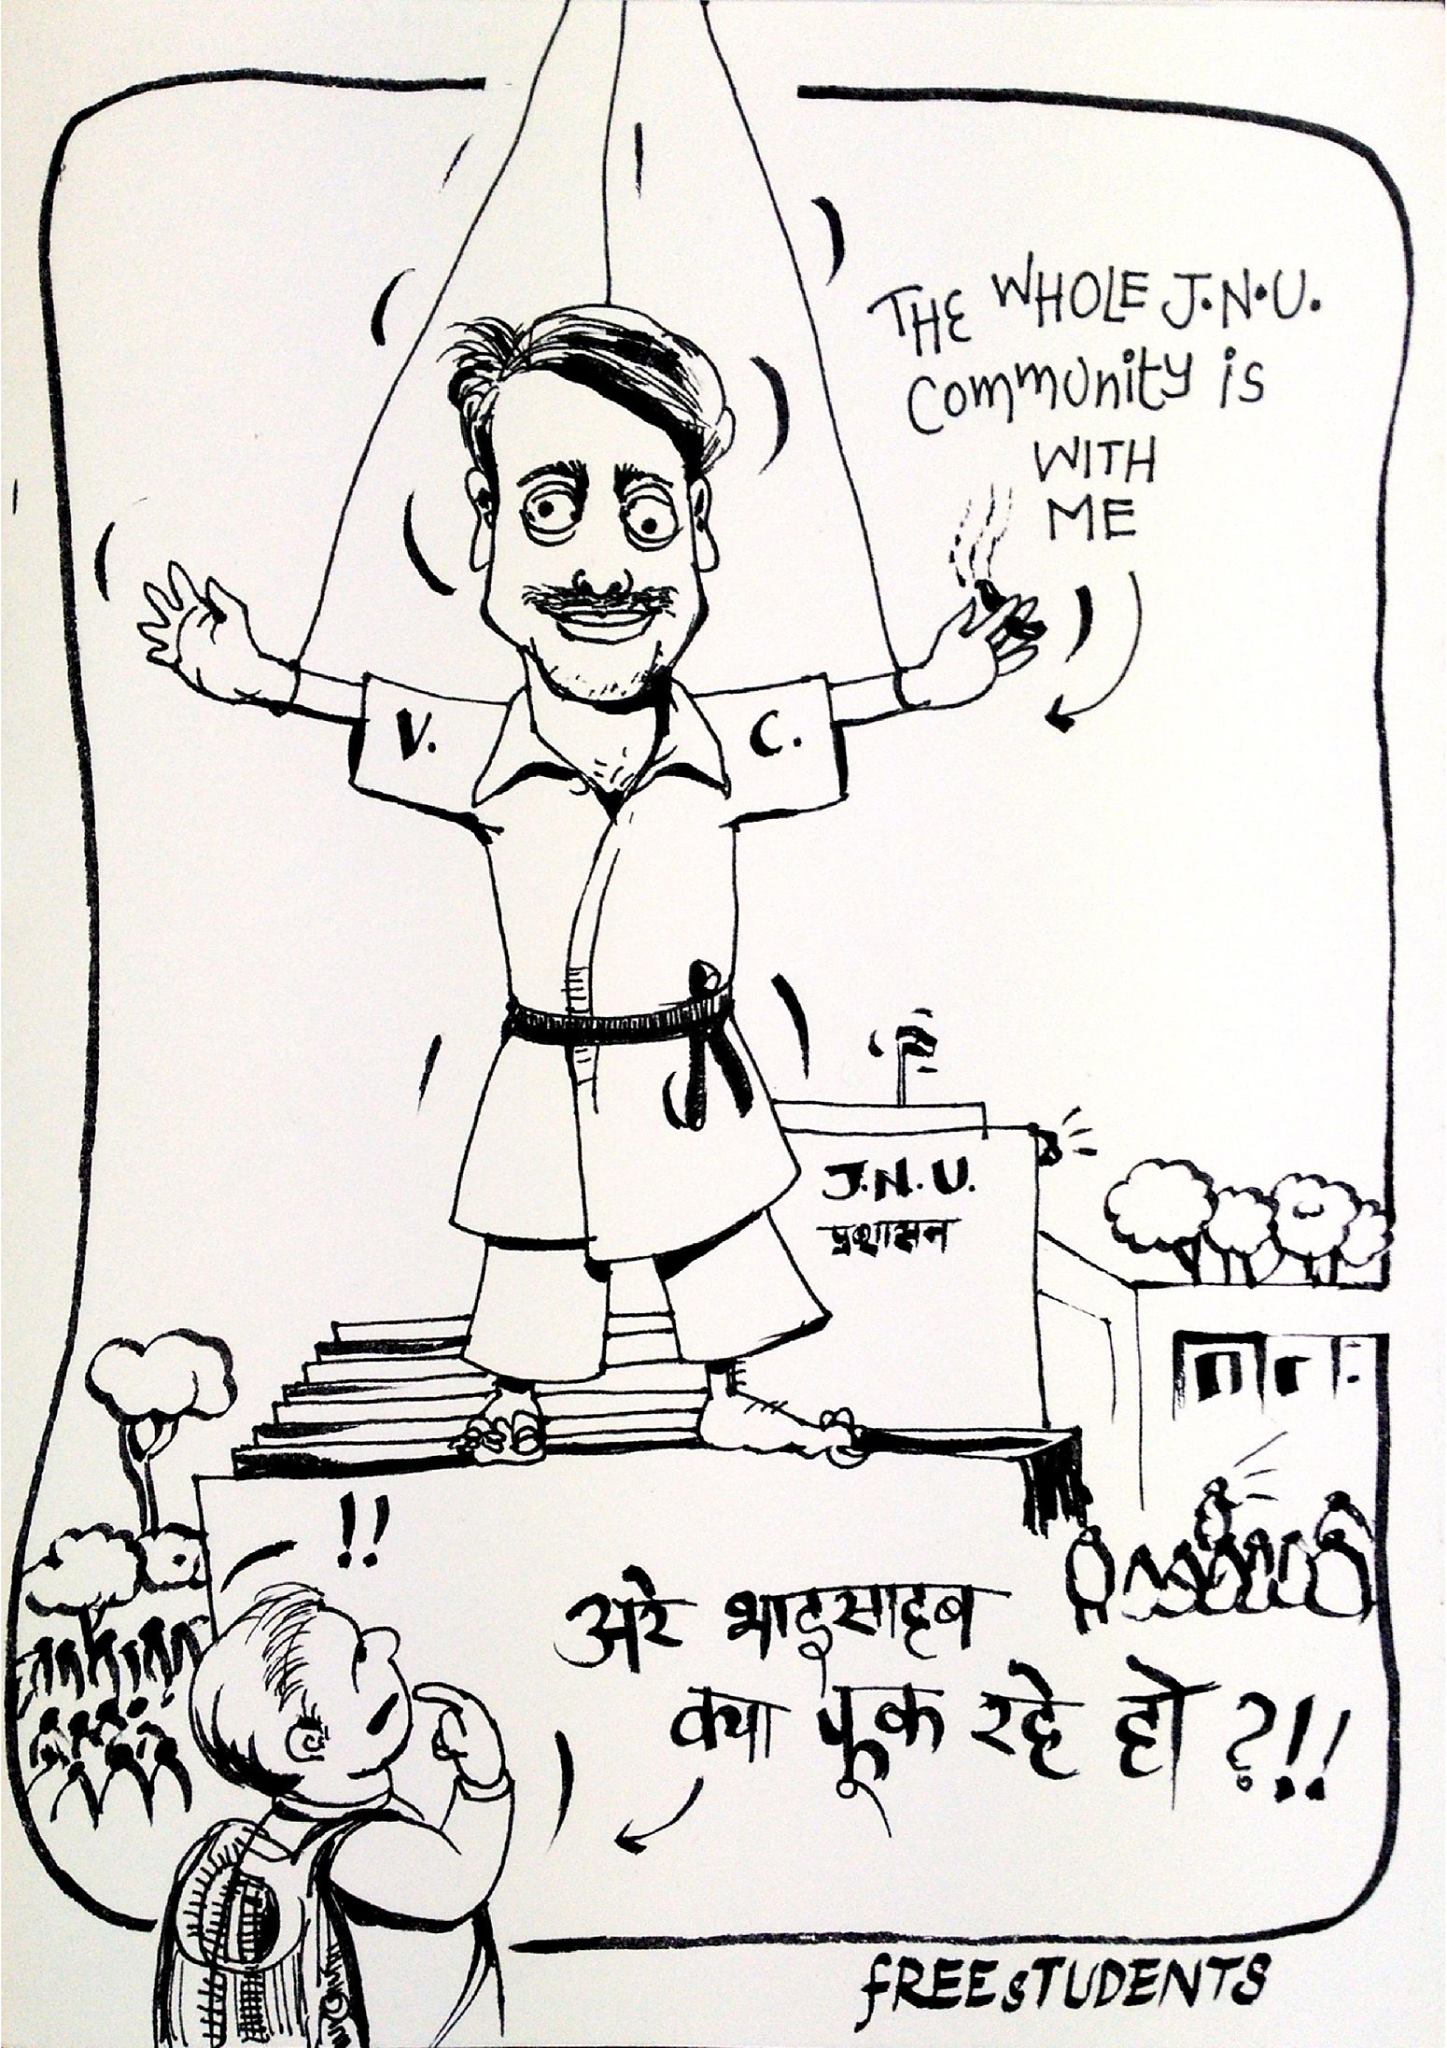 THE WHOLE J.N.U.
COMMUNITY is
WITH
ME
V. C.
J.N.U.
प्रशासन
!!
अरे भाइसाहब
क्या फूक रहे हो ?!!
fREEsTUDENTS